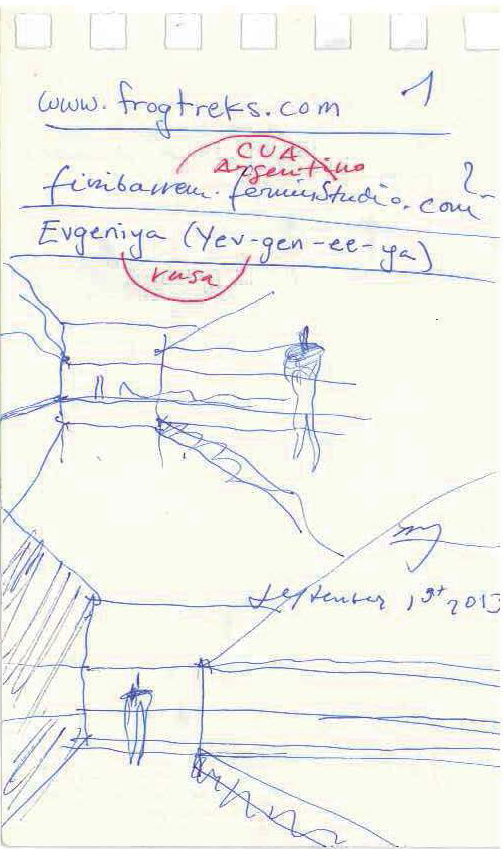 www.frogtreks.com 1
CUA
Argentino
.com ?
Evgeniya (Yev-gen-ee-ya)
rusa
September 1st 2013